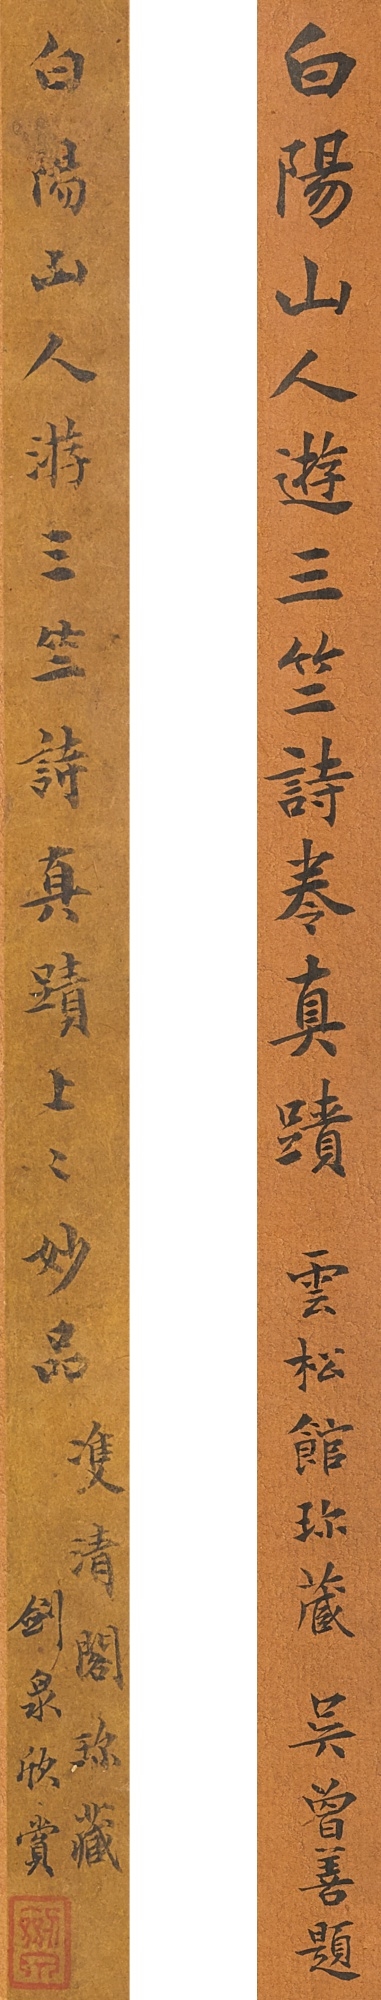 白陽山人遊三竺詩卷真蹟 雲松館珎藏 吳曾善題
白陽山人游三竺詩真蹟上〻妙品
雙清閣珎藏
劍泉欣賞